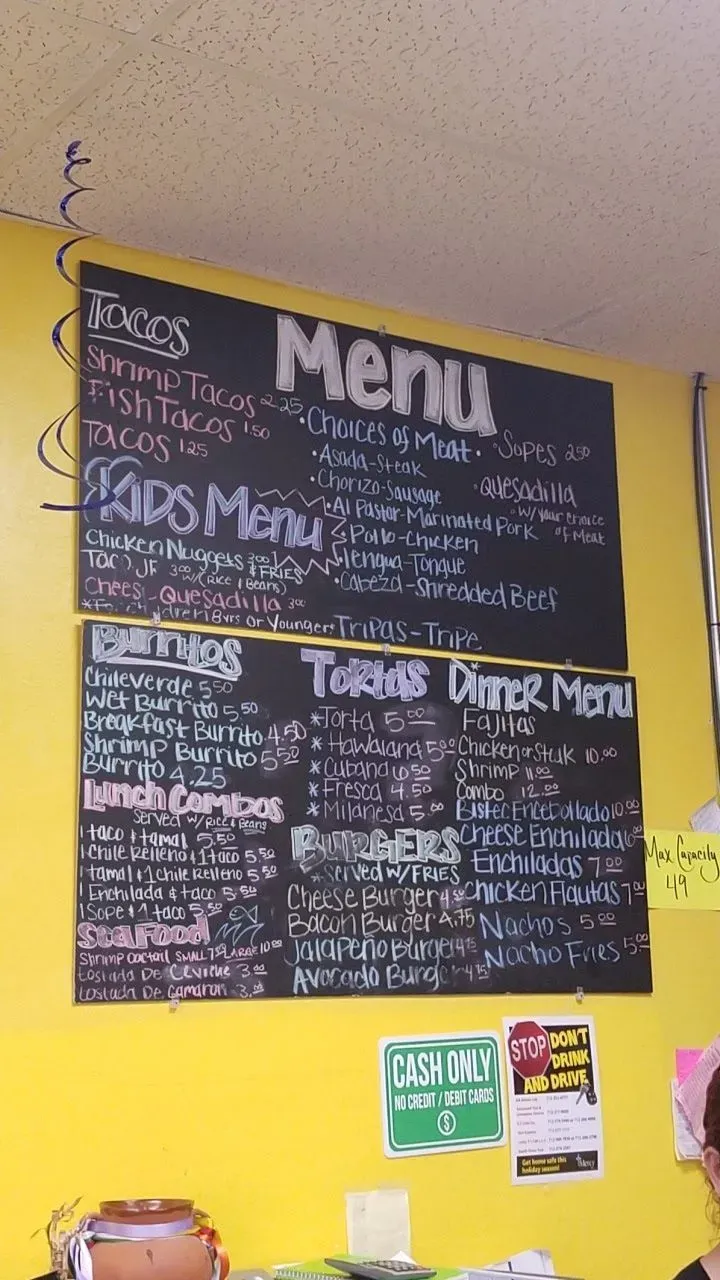 Menu
Tacos
Shrimp Tacos 2.25
Fish Tacos 1.50
Tacos 1.25
Kids Menu
Chicken Nuggets 3.00 & FRIES
3.00 w/(Rice & Beans)
Quesadilla 3.00
8yrs or Younger
• Choices of Meat •
• Asada-Steak
• Chorizo-Sausage
• Al Pastor-Marinated Pork
• Pollo-Chicken
• lengua-Tongue
• Cabeza-Shredded Beef
Tripas-Tripe
• Sopes 2.50
• Quesadilla
• w/your choice
of Meat
Burritos
Chile verde 5.50
Wet Burrito 5.50
Breakfast Burrito 4.50
Shrimp Burrito 5.50
Burrito 4.25
Lunch Combos
Served w/Rice & Beans
1 taco & tamal 5.50
1 Chile Relleno & 1 taco 5.50
1 tamal & 1 chile Relleno 5.50
1 Enchilada & taco 5.50
1 Sope & 1 taco 5.50
Seafood
Shrimp Cocktail SMALL 7.50 LARGE 10.00
tostada De Ceviche 3.00
tostada De Camaron 3.00
Tortas
* Torta 5.00
* Hawaiana 5.00
* Cubana 6.50
* Fresca 4.50
* Milanesa 5.00
BURGERS
* Served w/FRIES
Cheese Burger
Bacon Burger 4.75
Jalapeño Burger 4.75
Avocado Burger 4.75
Dinner Menu
Fajitas
Chicken or Steak 10.00
Shrimp 11.00
Combo 12.00
Bistec Encebollado 10.00
Cheese Enchilada
Enchiladas 7.00
Chicken Flautas 7.00
Nachos 5.00
Nacho Fries 5.00
Max Capacity
49
CASH ONLY
NO CREDIT / DEBIT CARDS
$
STOP DON'T
DRINK
AND DRIVE
Get home safe this
holiday season!
Mercy